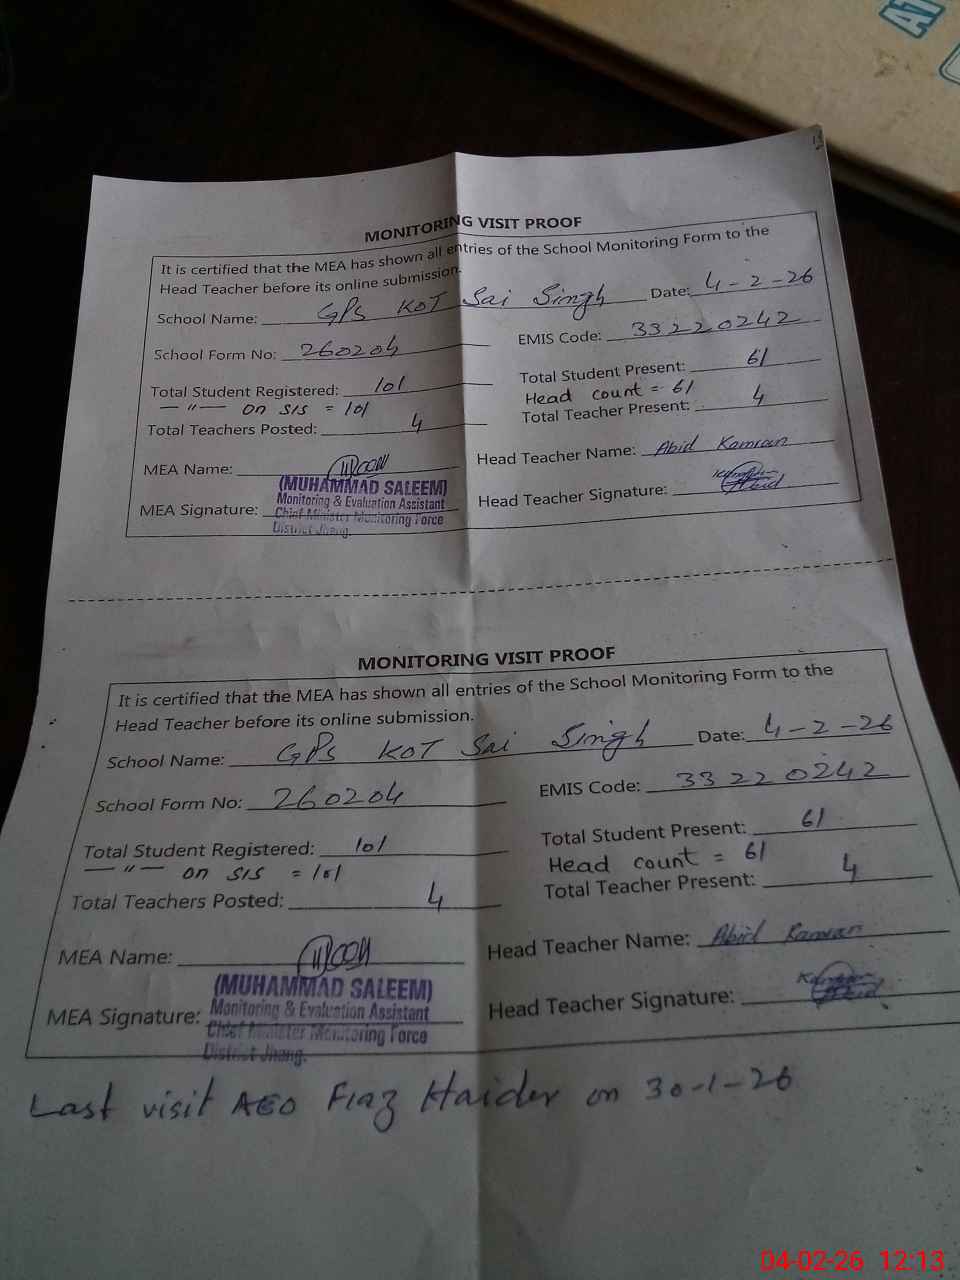 AT
MONITORING VISIT PROOF
It is certified that the MEA has shown all entries of the School Monitoring Form to the
Head Teacher before its online submission.
School Name: GPS KOT Sai Singh Date: 4-2-26
School Form No: 260204 EMIS Code: 33220242
Total Student Registered: 101 Total Student Present: 61
— " — on SIS = 101 Head count = 61
Total Teachers Posted: 4 Total Teacher Present: 4
MEA Name: Head Teacher Name: Abid Kamran
(MUHAMMAD SALEEM)
MEA Signature: Monitoring & Evaluation Assistant Head Teacher Signature: Kamran Abid
Chief Minister Monitoring Force
District Jhang.
MONITORING VISIT PROOF
It is certified that the MEA has shown all entries of the School Monitoring Form to the
Head Teacher before its online submission.
School Name: GPS KOT Sai Singh Date: 4-2-26
School Form No: 260204 EMIS Code: 33220242
Total Student Registered: 101 Total Student Present: 61
— " — on SIS = 101 Head count = 61
Total Teachers Posted: 4 Total Teacher Present: 4
MEA Name: Head Teacher Name: Abid Kamran
(MUHAMMAD SALEEM)
MEA Signature: Monitoring & Evaluation Assistant Head Teacher Signature: Kamran Abid
Chief Minister Monitoring Force
District Jhang.
Last visit AEO Fiaz Haider on 30-1-26
04-02-26 12:13